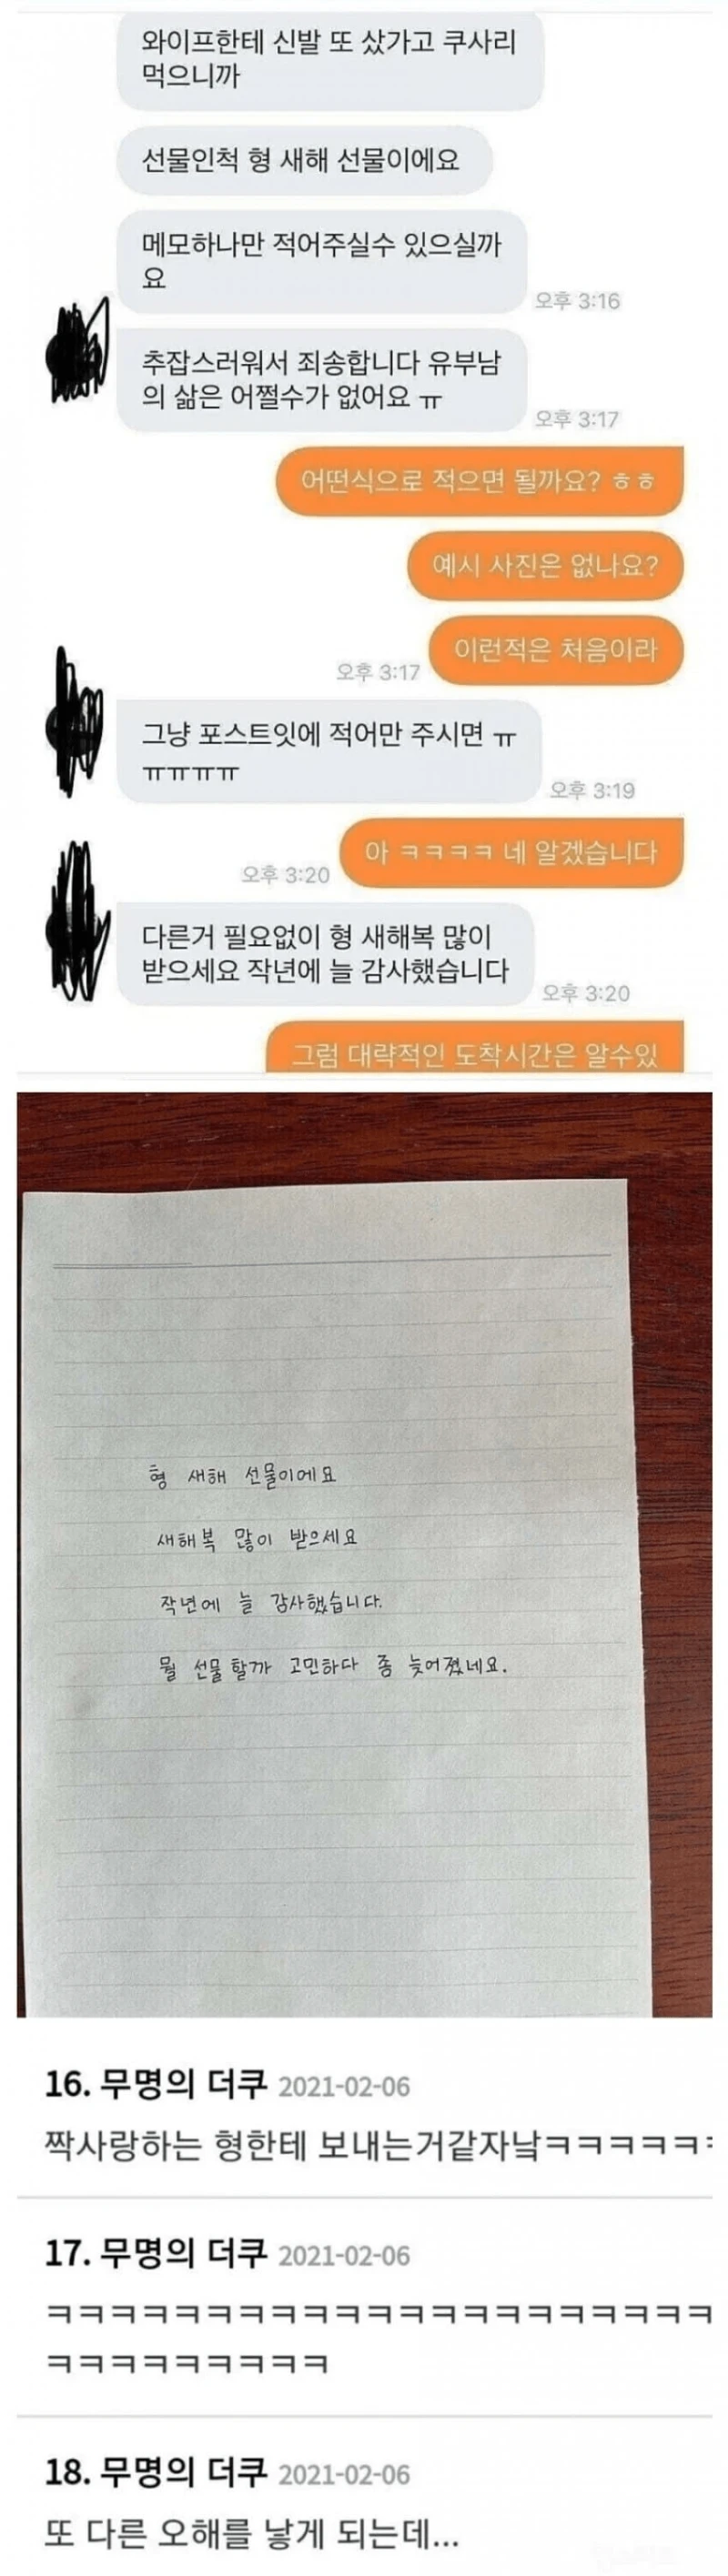 와이프한테 신발 또 샀가고 쿠사리
먹으니까
선물인척 형 새해 선물이에요
메모하나만 적어주실수 있으실까
요
오후 3:16
추잡스러워서 죄송합니다 유부남
의 삶은 어쩔수가 없어요 ㅠ
오후 3:17
어떤식으로 적으면 될까요? ㅎㅎ
예시 사진은 없나요?
이런적은 처음이라
오후 3:17
그냥 포스트잇에 적어만 주시면 ㅠ
ㅠㅠㅠㅠ
오후 3:19
아 ㅋㅋㅋㅋ 네 알겠습니다
오후 3:20
다른거 필요없이 형 새해복 많이
받으세요 작년에 늘 감사했습니다
오후 3:20
그럼 대략적인 도착시간은 알수있
형 새해 선물이에요
새해복 많이 받으세요
작년에 늘 감사했습니다.
뭘 선물할까 고민하다 좀 늦어졌네요.
16. 무명의 더쿠 2021-02-06
짝사랑하는 형한테 보내는거같자낰ㅋㅋㅋㅋㅋ
17. 무명의 더쿠 2021-02-06
ㅋㅋㅋㅋㅋㅋㅋㅋㅋㅋㅋㅋㅋㅋㅋㅋㅋㅋㅋㅋㅋ
ㅋㅋㅋㅋㅋㅋㅋㅋㅋ
18. 무명의 더쿠 2021-02-06
또 다른 오해를 낳게 되는데...